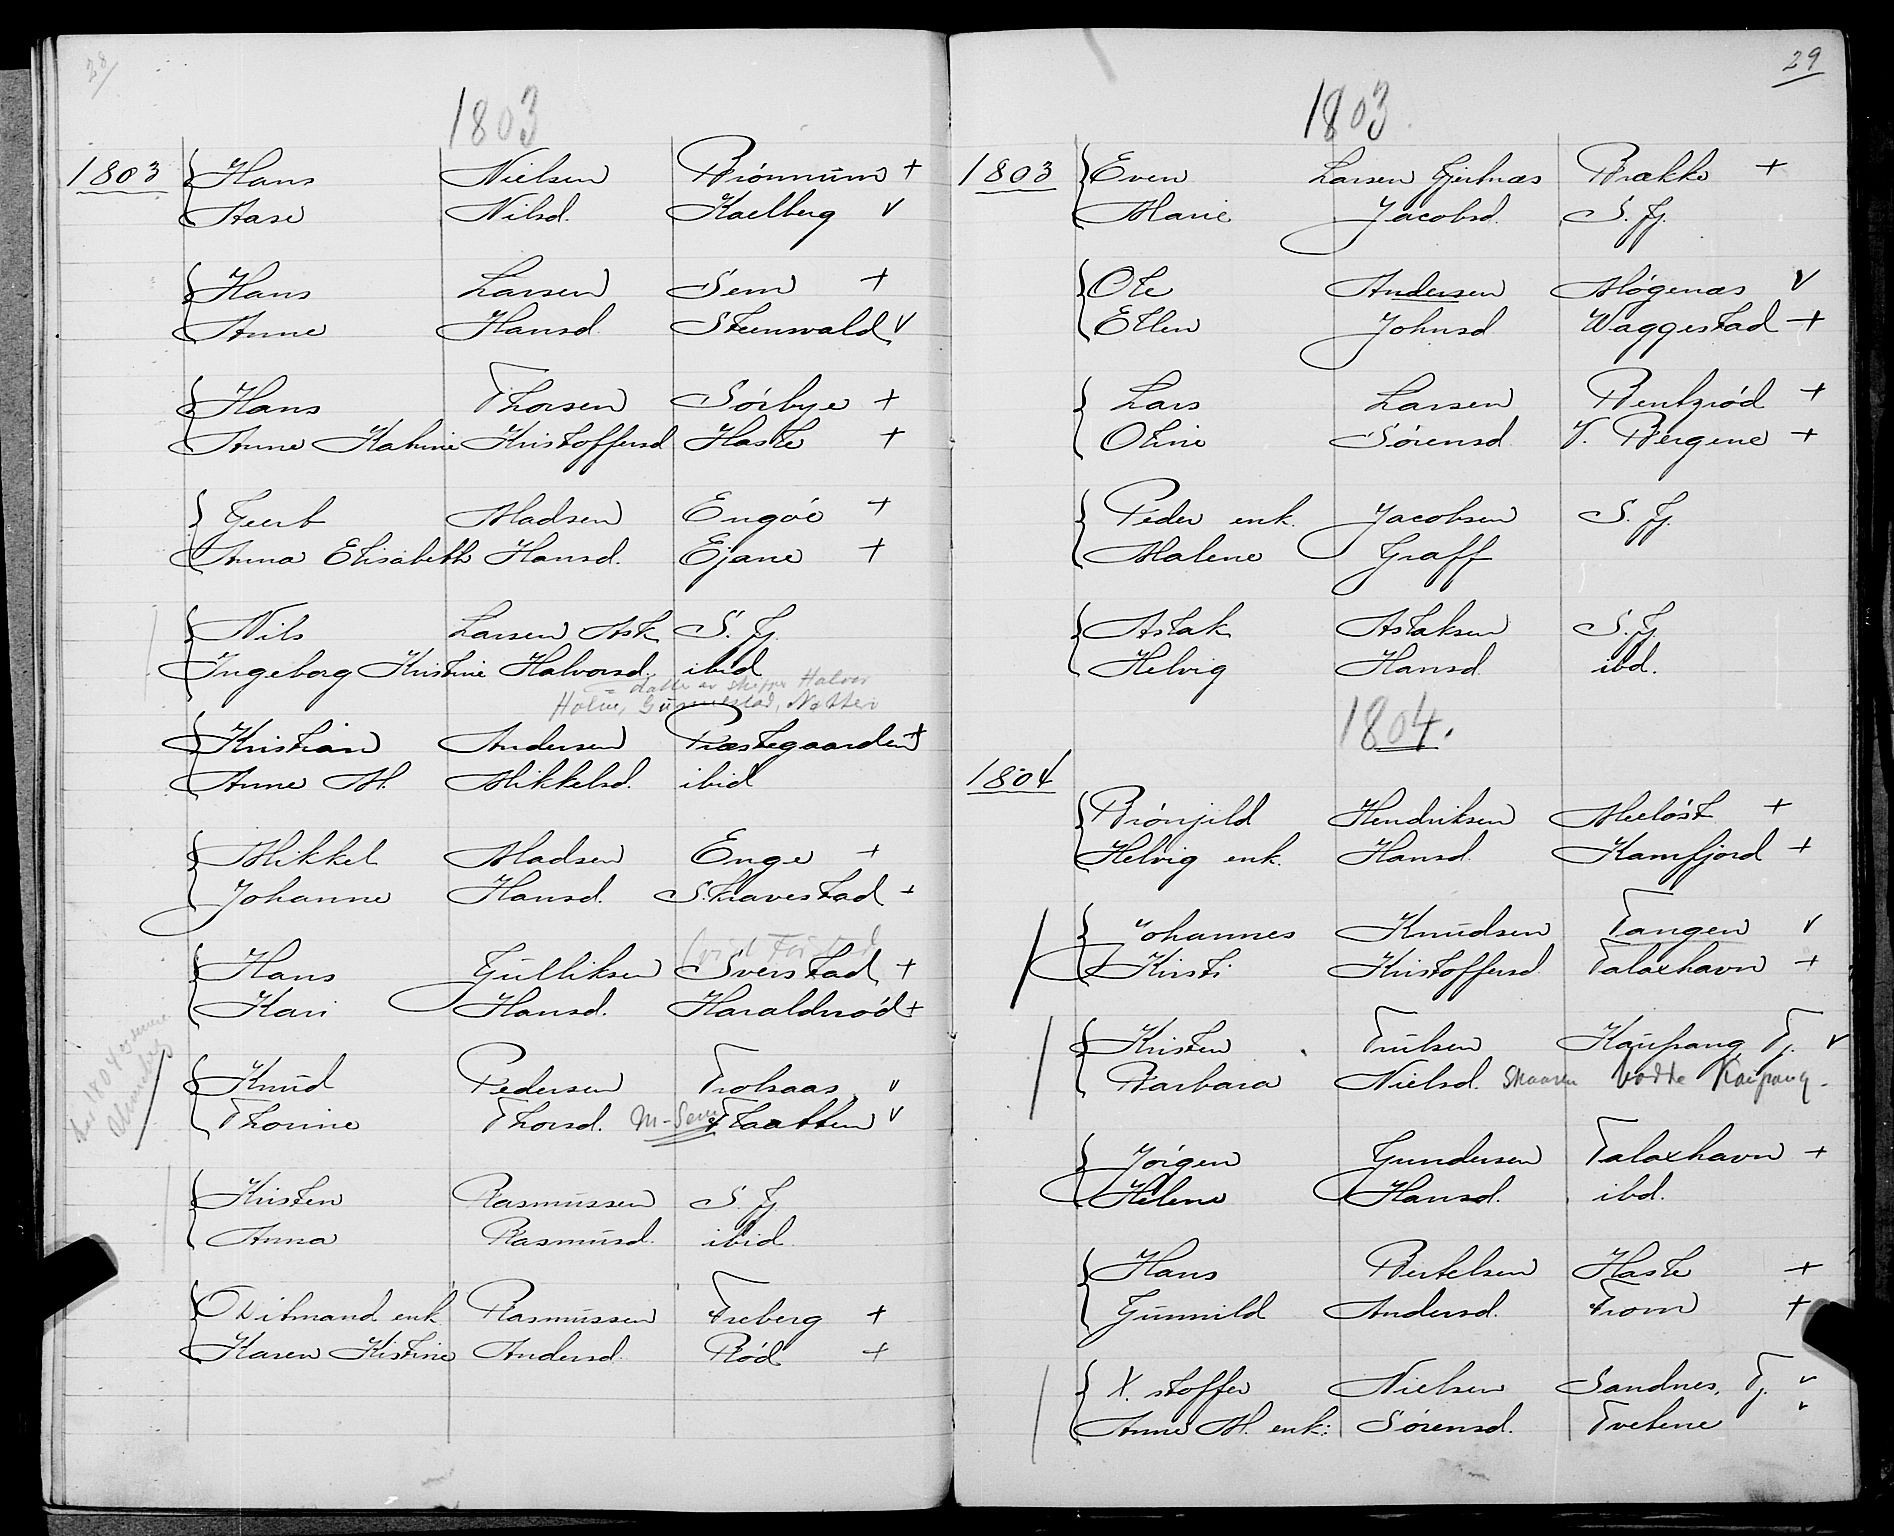 28
1803
1803 Hans Nielsen Brönnum +
Aase Nilsd. Kaelberg v
Hans Larsen Sem +
Anne Hansd. Steenswald v
Hans Thorsen Sörbye +
Anne Katrine Kristoffersd Haste +
Geert Madsen Engöe +
Anna Elisabeth Hansd. Ejane +
Nils Larsen Ask S. Fj.
Ingeborg Kristine Halvorsd. ibid
= datter av skipper Halvor
Holm, Gunnestad, Nøtterö
Kristian Andersen Præstegaarden +
Anne M. Mikkelsd. ibid
Mikkel Madsen Enge +
Johanne Hansd. S. Stavestad +
Hans Gulliksen Sverstad +
Kari Hansd. Haraldsröd +
Knud Pedersen Trolsaas v
Thorine Thorsd. M-Sem Flaatten v
Kristen Rasmussen S. Fj.
Anna Rasmusd. ibid.
Ditmand enk. Rasmussen Freberg +
Karen Kistine Andersd. Röd +
29
1803
1803 Even Larsen Gjertnæs Brække +
Marie Jacobsd. S. Fj.
Ole Andersen Mögenæs v
Ellen Johnsd Waggestad +
Lars Larsen Bentzröd +
Oline Sörensd. V. Bergene +
Peder enk. Jacobsen S. Fj.
Malene Graff
Aslak Aslaksen S. Fj.
Helvig Hansd. ibd.
1804.
1804
Brönjild Hendriksen Meelöst +
Helvig enk. Hansd. Kamfjord +
Johannes Knudsen Tangen v
Kirsti Kristoffersd. Talaxhavn +
Kristen Trulsen Kaupang, Tj. v
Barbara Nielsd. Skaaren bodde Kaupang.
Jörgen Gundersen Talaxhavn +
Helene Hansd. ibd.
Hans Bertelsen Haste +
Gunnild Andersd. From +
X. stoffer Nielsen Sandnes, Tj. v
Anne M. enk: Sörensd. Tvetene v